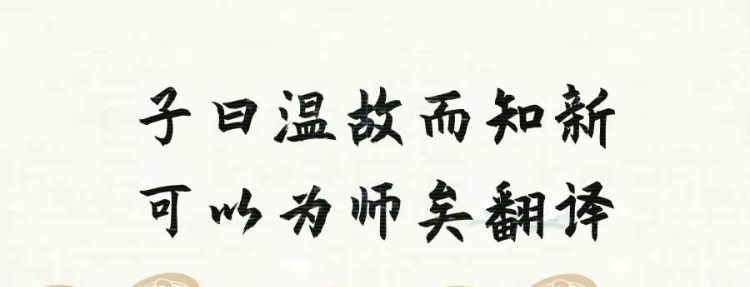 子曰温故而知新
可以为师矣翻译